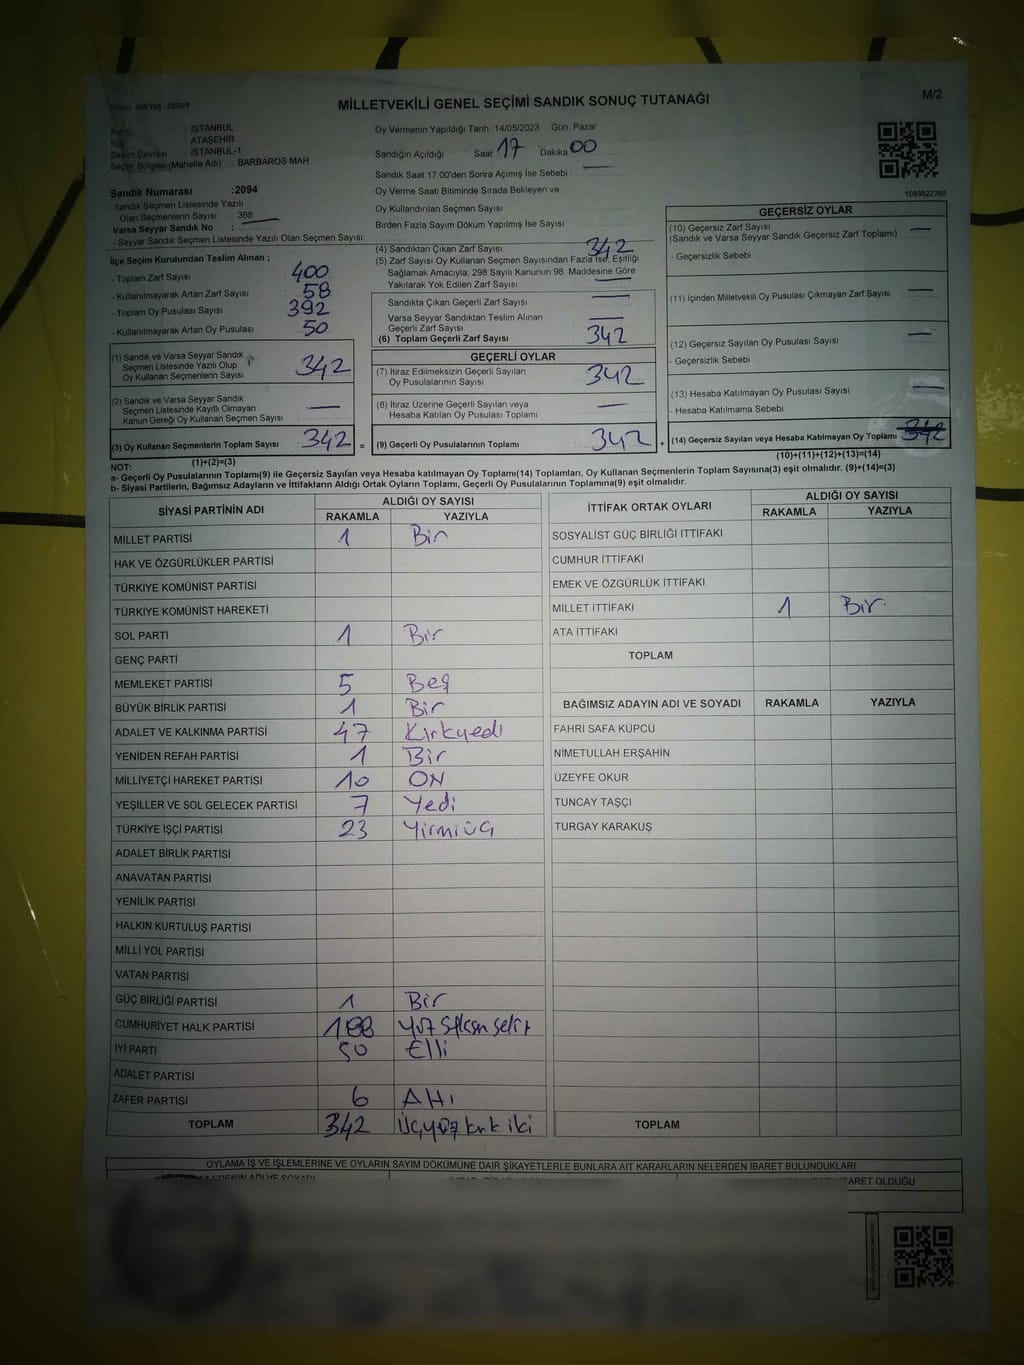 MİLLETVEKİLİ GENEL SEÇİMİ SANDIK SONUÇ TUTANAĞI
M/2
: İSTANBUL
: ATAŞEHİR
Seçim Çevresi : İSTANBUL-1
Seçim Bölgesi (Mahalle Adı) : BARBAROS MAH
Sandık Numarası :2094
- Sandık Seçmen Listesinde Yazılı
Olan Seçmenlerin Sayısı : 368
Varsa Seyyar Sandık No :
- Seyyar Sandık Seçmen Listesinde Yazılı Olan Seçmen Sayısı:
Oy Vermenin Yapıldığı Tarih :14/05/2023 Gün Pazar
Sandığın Açıldığı Saat 17 Dakika 00
Sandık Saat 17:00'den Sonra Açımış İse Sebebi :
Oy Verme Saati Bitiminde Sırada Bekleyen ve
Oy Kullandırılan Seçmen Sayısı
Birden Fazla Sayım Döküm Yapılmış İse Sayısı
1083822760
İlçe Seçim Kurulundan Teslim Alınan ;
- Toplam Zarf Sayısı 400
- Kullanılmayarak Artan Zarf Sayısı 58
- Toplam Oy Pusulası Sayısı 392
- Kullanılmayarak Artan Oy Pusulası 50
(1) Sandık ve Varsa Seyyar Sandık
Seçmen Listesinde Yazılı Olup
Oy Kullanan Seçmenlerin Sayısı 342
(2) Sandık ve Varsa Seyyar Sandık
Seçmen Listesinde Kayıtlı Olmayan
Kanun Gereği Oy Kullanan Seçmen Sayısı
(3) Oy Kullanan Seçmenlerin Toplam Sayısı 342 =
(1)+(2)=(3)
(4) Sandıktan Çıkan Zarf Sayısı 342
(5) Zarf Sayısı Oy Kullanan Seçmen Sayısından Fazla İse, Eşitliği
Sağlamak Amacıyla; 298 Sayılı Kanunun 98. Maddesine Göre
Yakılarak Yok Edilen Zarf Sayısı
Sandıkta Çıkan Geçerli Zarf Sayısı
Varsa Seyyar Sandıktan Teslim Alınan
Geçerli Zarf Sayısı
(6) Toplam Geçerli Zarf Sayısı 342
GEÇERLİ OYLAR
(7) İtiraz Edilmeksizin Geçerli Sayılan
Oy Pusulalarının Sayısı 342
(8) İtiraz Üzerine Geçerli Sayılan veya
Hesaba Katılan Oy Pusulası Toplamı
(9) Geçerli Oy Pusulalarının Toplamı 342 +
GEÇERSİZ OYLAR
(10) Geçersiz Zarf Sayısı
(Sandık ve Varsa Seyyar Sandık Geçersiz Zarf Toplamı)
- Geçersizlik Sebebi
(11) İçinden Milletvekili Oy Pusulası Çıkmayan Zarf Sayısı
(12) Geçersiz Sayılan Oy Pusulası Sayısı
- Geçersizlik Sebebi
(13) Hesaba Katılmayan Oy Pusulası Sayısı
- Hesaba Katılmama Sebebi
(14) Geçersiz Sayılan veya Hesaba Katılmayan Oy Toplamı 342
(10)+(11)+(12)+(13)=(14)
NOT:
a- Geçerli Oy Pusulalarının Toplamı(9) ile Geçersiz Sayılan veya Hesaba katılmayan Oy Toplamı(14) Toplamları, Oy Kullanan Seçmenlerin Toplam Sayısına(3) eşit olmalıdır. (9)+(14)=(3)
b- Siyasi Partilerin, Bağımsız Adayların ve İttifakların Aldığı Ortak Oyların Toplamı, Geçerli Oy Pusulalarının Toplamına(9) eşit olmalıdır.
SİYASİ PARTİNİN ADI ALDIĞI OY SAYISI
RAKAMLA YAZIYLA
MİLLET PARTİSİ 1 Bir
HAK VE ÖZGÜRLÜKLER PARTİSİ
TÜRKİYE KOMÜNİST PARTİSİ
TÜRKİYE KOMÜNİST HAREKETİ
SOL PARTİ 1 Bir
GENÇ PARTİ
MEMLEKET PARTİSİ 5 Beş
BÜYÜK BİRLİK PARTİSİ 1 Bir
ADALET VE KALKINMA PARTİSİ 47 Kırkyedi
YENİDEN REFAH PARTİSİ 1 Bir
MİLLİYETÇİ HAREKET PARTİSİ 10 ON
YEŞİLLER VE SOL GELECEK PARTİSİ 7 Yedi
TÜRKİYE İŞÇİ PARTİSİ 23 Yirmiüç
ADALET BİRLİK PARTİSİ
ANAVATAN PARTİSİ
YENİLİK PARTİSİ
HALKIN KURTULUŞ PARTİSİ
MİLLİ YOL PARTİSİ
VATAN PARTİSİ
GÜÇ BİRLİĞİ PARTİSİ 1 Bir
CUMHURİYET HALK PARTİSİ 188
İYİ PARTİ 50 Elli
ADALET PARTİSİ
ZAFER PARTİSİ 6 Altı
TOPLAM 342 Üçyüz kırk iki
İTTİFAK ORTAK OYLARI ALDIĞI OY SAYISI
RAKAMLA YAZIYLA
SOSYALİST GÜÇ BİRLİĞİ İTTİFAKI
CUMHUR İTTİFAKI
EMEK VE ÖZGÜRLÜK İTTİFAKI
MİLLET İTTİFAKI 1 Bir
ATA İTTİFAKI
TOPLAM
BAĞIMSIZ ADAYIN ADI VE SOYADI RAKAMLA YAZIYLA
FAHRİ SAFA KÜPCÜ
NİMETULLAH ERŞAHİN
ÜZEYFE OKUR
TUNCAY TAŞÇI
TURGAY KARAKUŞ
TOPLAM
OYLAMA İŞ VE İŞLEMLERİNE VE OYLARIN SAYIM DÖKÜMÜNE DAİR ŞİKAYETLERLE BUNLARA AİT KARARLARIN NELERDEN İBARET BULUNDUKLARI